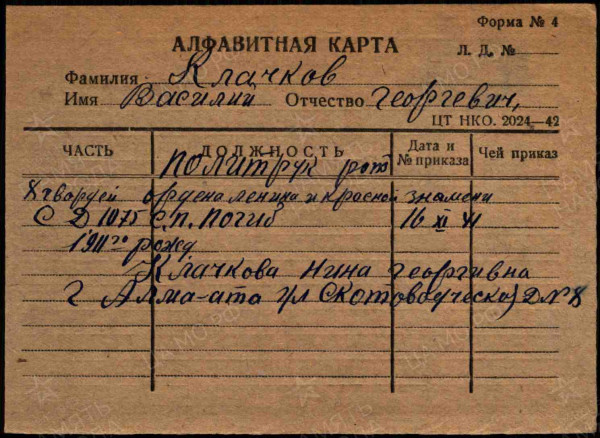 Форма № 4
АЛФАВИТНАЯ КАРТА
Л. Д. №
Фамилия Клачков
Имя Василий Отчество Георгевич,
ЦТ НКО. 2024—42
ЧАСТЬ ДОЛЖНОСТЬ Дата и № приказа Чей приказ
политрук рот
8 гвардей ордена ленина и красной знамени
С Д 1075 с.п. Погиб 16 XI 41
1911 го рожд
Клачкова Нина Георгивна
г Алма-ата ул Скотоводческая Д № 8